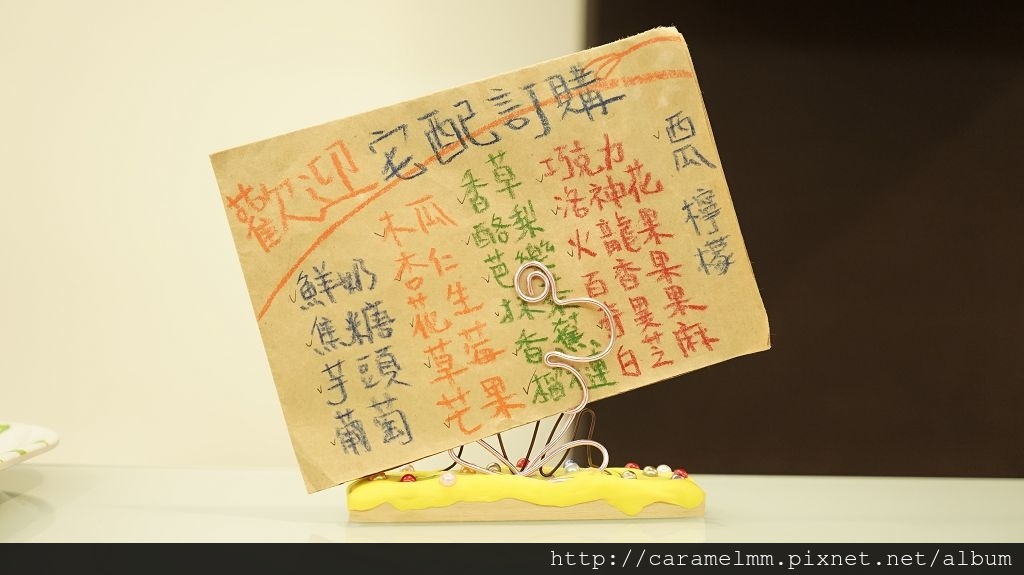 歡迎宅配訂購
鮮奶
焦糖
芋頭
葡萄
木瓜
杏仁
花生
草莓
芒果
香草
酪梨
芭樂
抹茶
香蕉
榴槤
巧克力
洛神花
火龍果
百香果
奇異果
白芝麻
西瓜
檸檬
http://caramelmm.pixnet.net/album